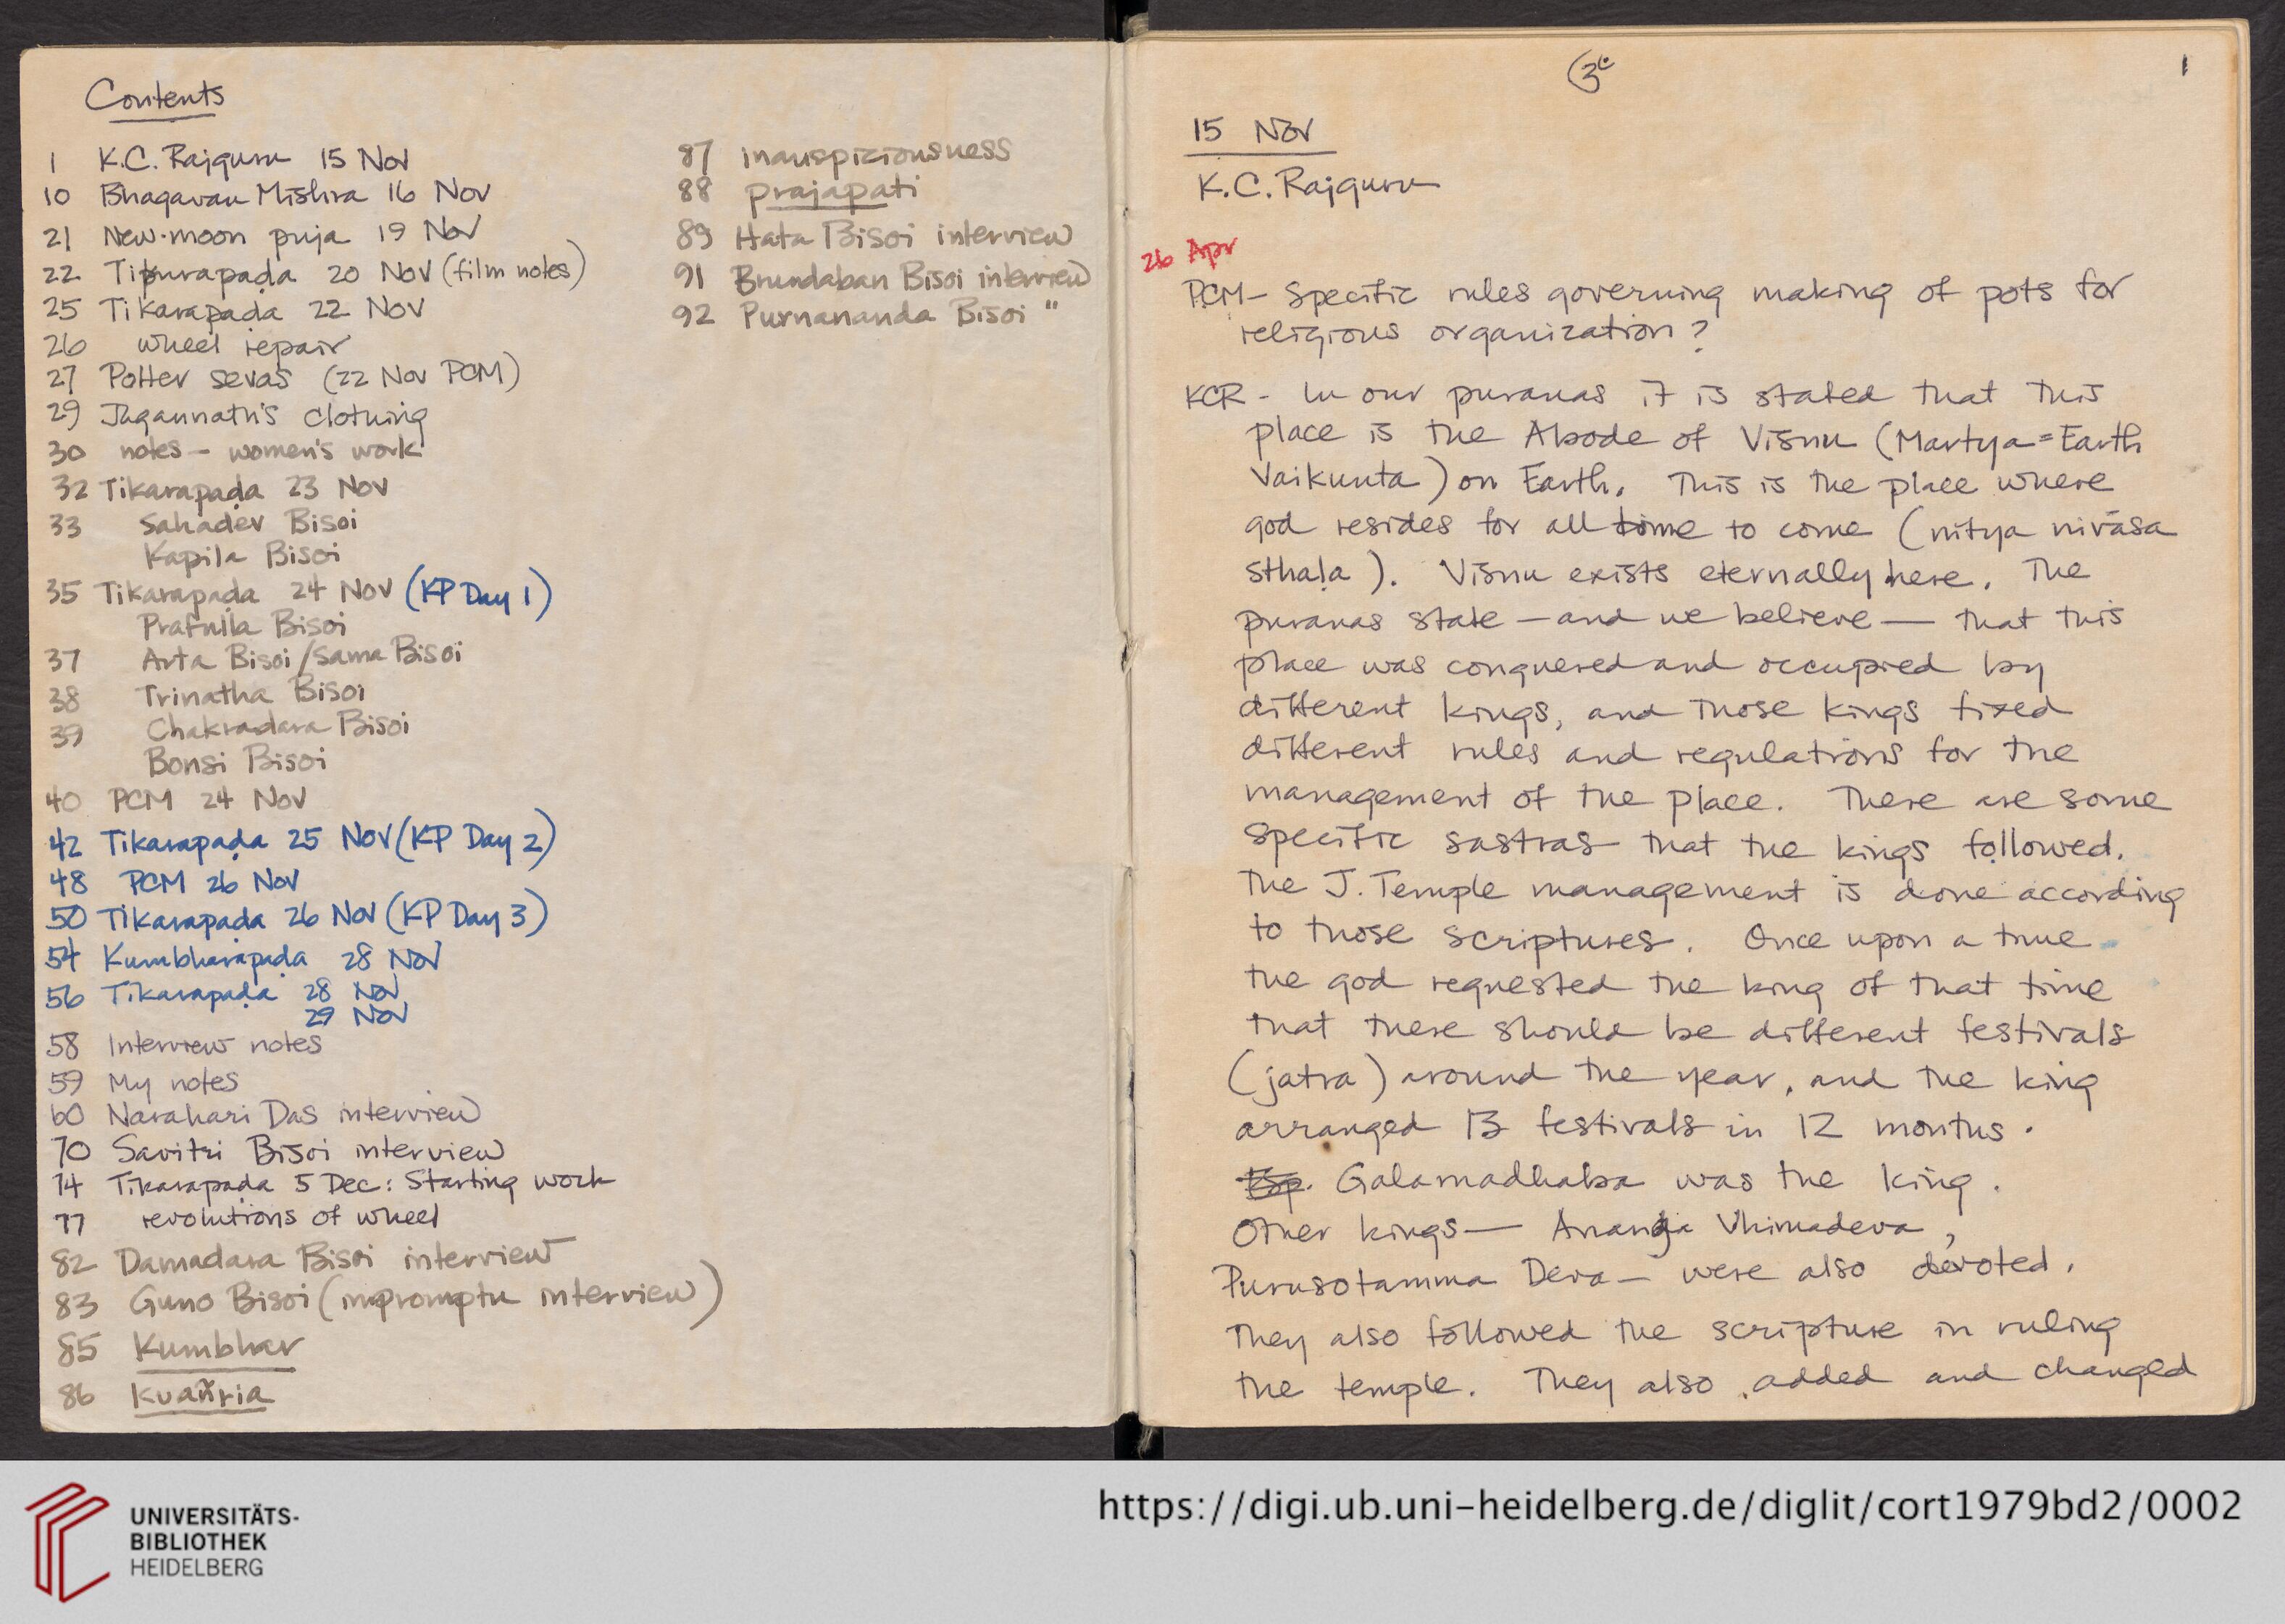 Contents
1 K.C. Rajguru 15 Nov
10 Bhagavan Mishra 16 Nov
21 New-moon puja 19 Nov
22 Tikarapaḍa 20 Nov (film notes)
25 Tikarapaḍa 22 Nov
26 wheel repair
27 Potter sevas (22 Nov PCM)
29 Jagannath's clothing
30 notes – women's work
32 Tikarapaḍa 23 Nov
33 Sahadev Bisoi
Kapila Bisoi
35 Tikarapaḍa 24 Nov (KP Day 1)
Prafulla Bisoi
37 Arta Bisoi / Sama Bisoi
38 Trinatha Bisoi
39 Chakradara Bisoi
Bonsi Bisoi
40 PCM 24 Nov
42 Tikarapaḍa 25 Nov (KP Day 2)
48 PCM 26 Nov
50 Tikarapaḍa 26 Nov (KP Day 3)
54 Kumbharapaḍa 28 Nov
56 Tikarapaḍa 28 Nov
29 Nov
58 Interview notes
59 My notes
60 Narahari Das interview
70 Savitri Bisoi interview
74 Tikarapaḍa 5 Dec: Starting work
77 revolutions of wheel
82 Damadara Bisoi interview
83 Guno Bisoi (impromptu interview)
85 Kumbhar
86 Kuañria
87 inauspiciousness
88 prajapati
89 Hata Bisoi interview
91 Brundaban Bisoi interview
92 Purnananda Bisoi "
1
15 Nov
K.C. Rajguru
26 Apr
PCM – Specific rules governing making of pots for
religious organization?
KCR – In our puranas it is stated that this
place is the Abode of Visnu (Martya = Earth
Vaikunta) on Earth. This is the place where
god resides for all time to come (nitya nivāsa
sthaḷa). Visnu exists eternally here. The
puranas state – and we believe – that this
place was conquered and occupied by
different kings, and those kings fixed
different rules and regulations for the
management of the place. There are some
specific sastras that the kings followed.
The J. Temple management is done according
to those scriptures. Once upon a time
the god requested the king of that time
that there should be different festivals
(jatra) around the year, and the king
arranged 13 festivals in 12 months.
Galamadhaba was the king.
Other kings – Ananga Vhimadeva,
Purusotamma Deva – were also devoted.
They also followed the scripture in ruling
the temple. They also added and changed
UNIVERSITÄTS-
BIBLIOTHEK
HEIDELBERG
https://digi.ub.uni-heidelberg.de/diglit/cort1979bd2/0002